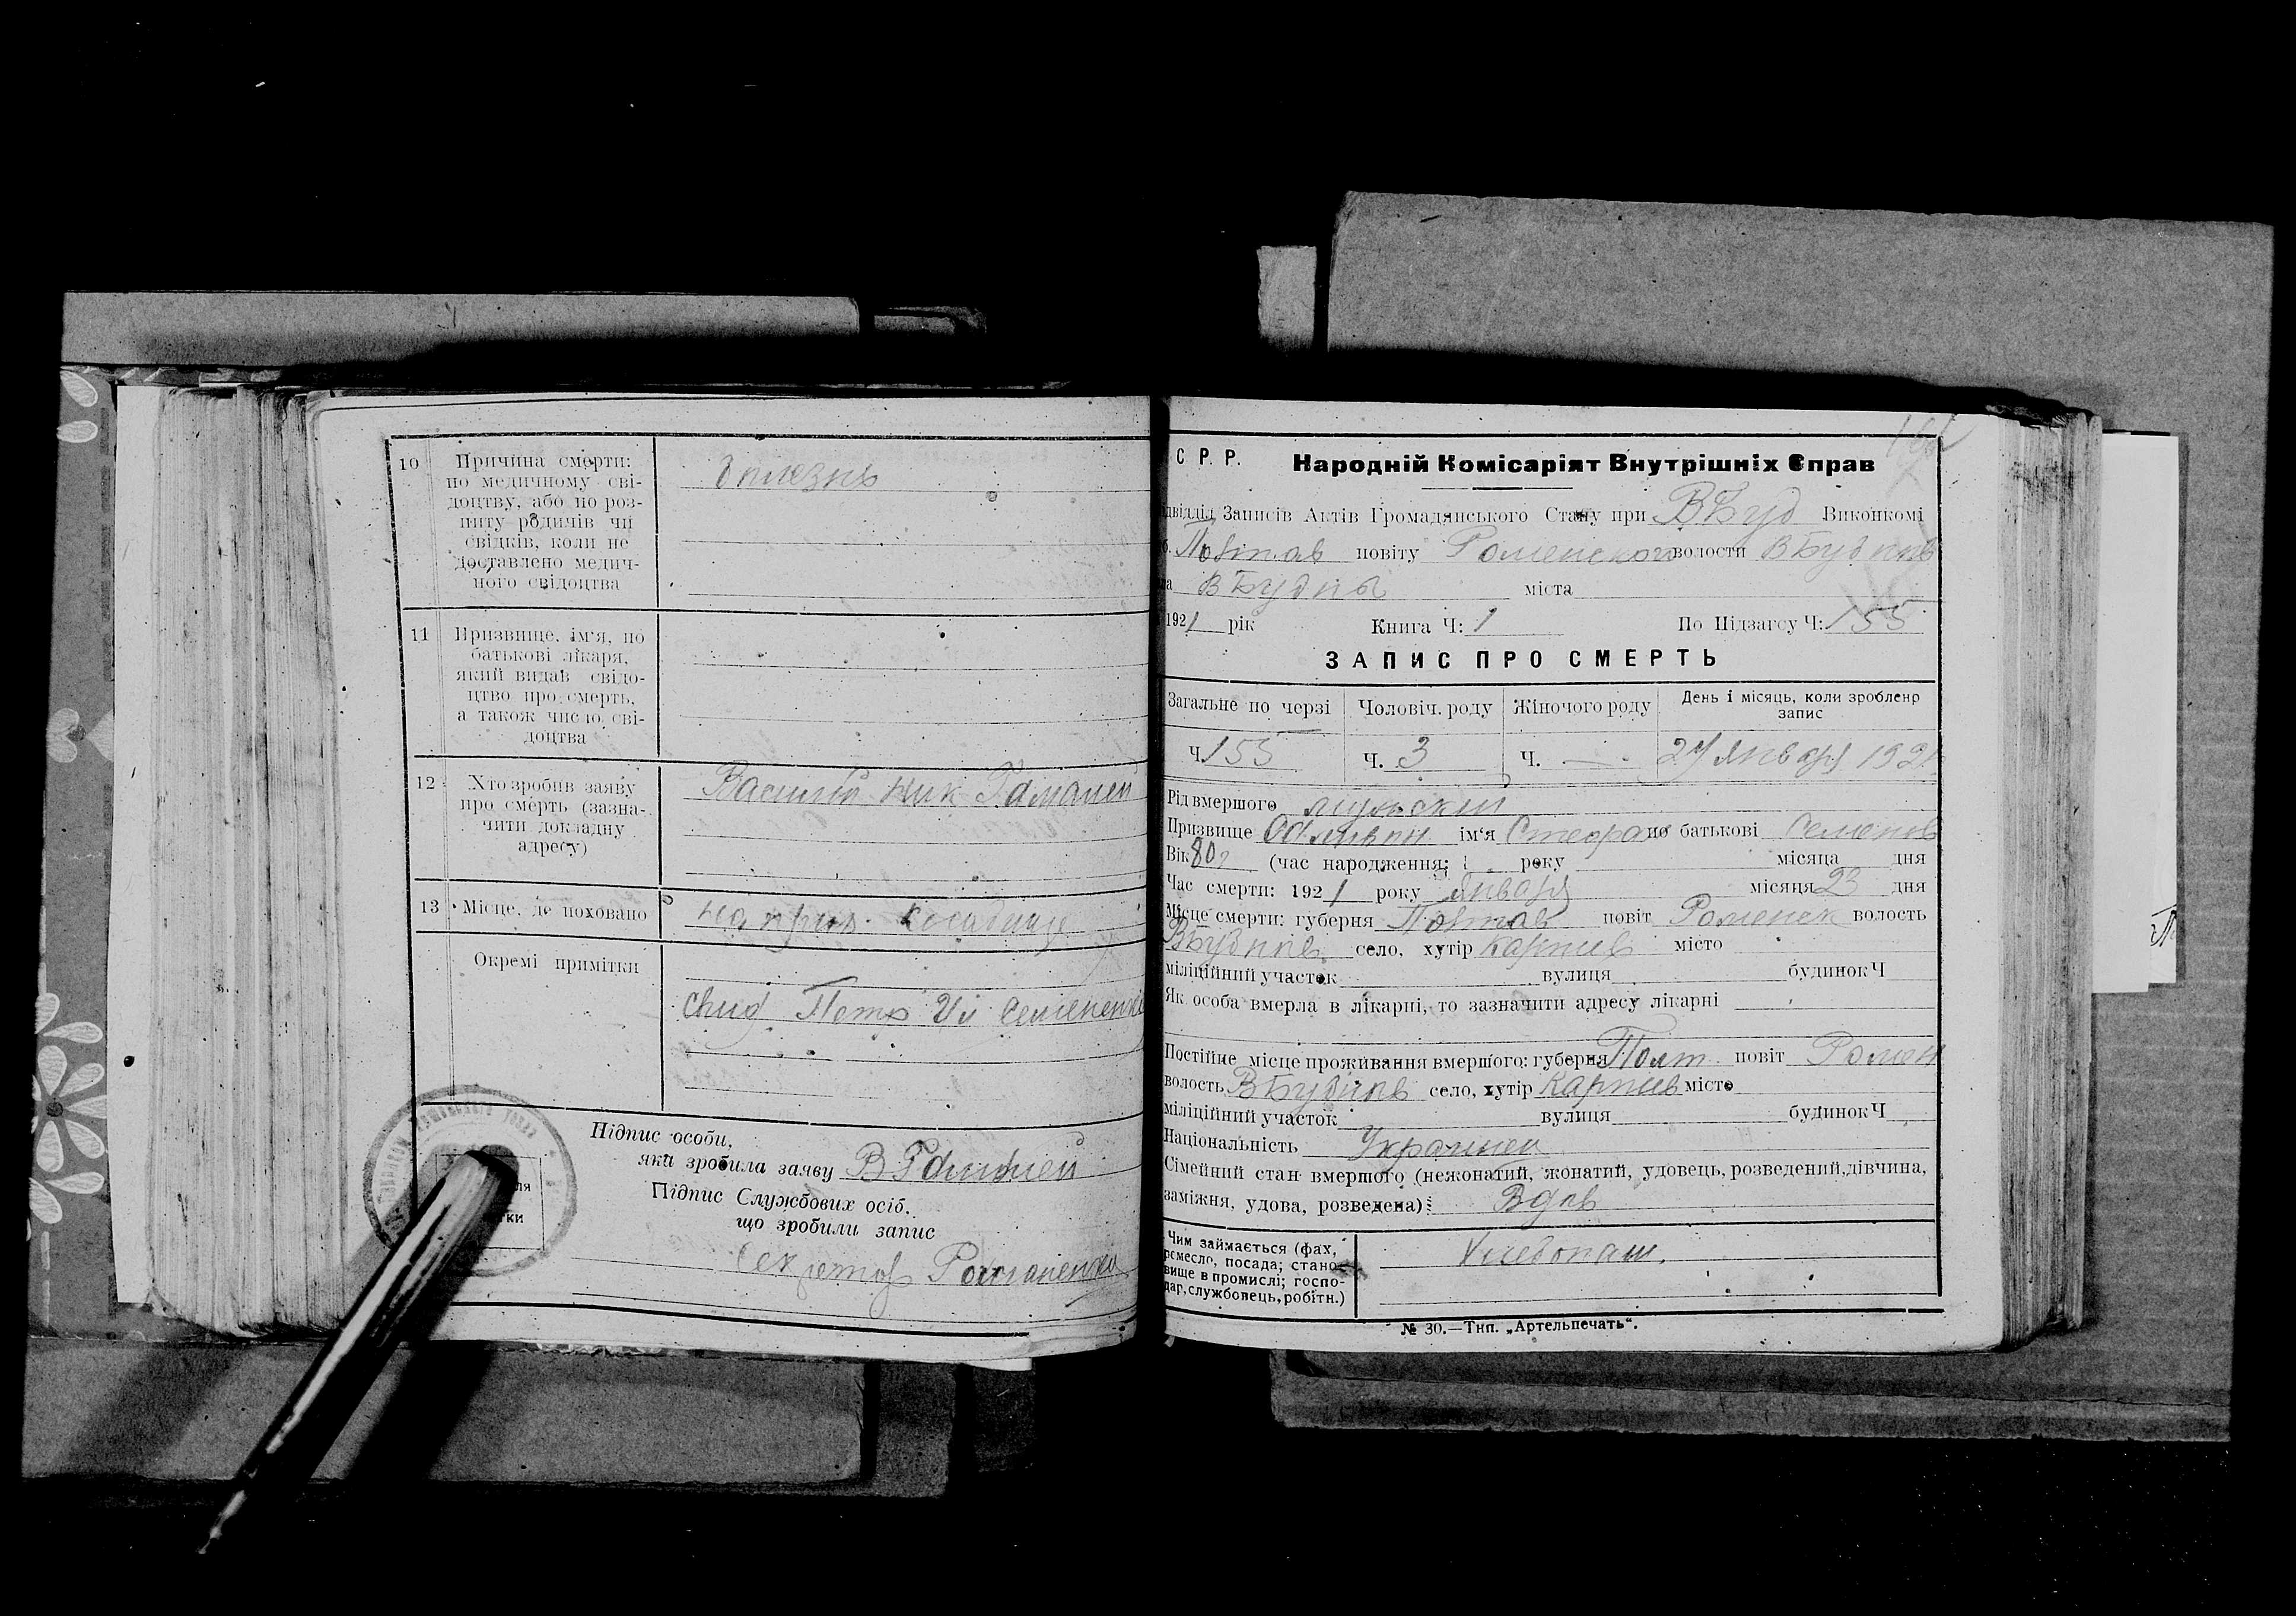 10
Причина смерти:
по медичному сві-
доцтву, або по роз-
питу родичів чи
свідків, коли не
доставлено медич-
ного свідоцтва
болезнь
11
Призвище, ім'я, по
батькові лікаря,
який видав свідо-
цтво про смерть,
а також число сві-
доцтва
12
Хто зробив заяву
про смерть (зазна-
чити докладну
адресу)
Василий Ник
13
Місце, де поховано
на прих.
Окремі примітки
Петр Семененко
Підпис особи,
яка зробила заяву В
Підпис Службових осіб,
що зробили запис
Секретарь Романенко
С Р. Р.
Народній Комісаріят Внутрішніх Справ
відділ Записів Актів Громадянського Стану при ВБуд Виконкомі
Полтав повіту Роменского волости ВБудков
ВБудки міста
1921 рік Книга Ч: 1 По Підзагсу Ч: 155
ЗАПИС ПРО СМЕРТЬ
Загальне по черзі
Чоловіч. роду
Жіночого роду
День і місяць, коли зроблено
запис
Ч. 155
Ч. 3
Ч. —
27 января 1921
Рід вмершого мужский
Призвище ім'я Стефан по батькові Семенов
Вік 80 г (час народження: 1 року місяца дня
Час смерти: 1921 року января місяця 23 дня
Місце смерти: губерня Полтав повіт Роменск волость
ВБудков село, хутір Карпив місто
міліційний участок вулиця будинок Ч
Як особа вмерла в лікарні, то зазначити адресу лікарні
Постійне місце проживання вмершого: губерня Полт повіт Ромен
волость ВБудков село, хутір Карпив місто
міліційний участок вулиця будинок Ч
Національність Украинец
Сімейний стан вмершого (нежонатий, жонатий, удовець, розведений, дівчина,
заміжня, удова, розведена): Вдов
Чим займається (фах,
ремесло, посада; стано-
вище в промислі; госпо-
дар, службовець, робітн.)
Хлебопаш.
№ 30.—Тип. „Артельпечать“.